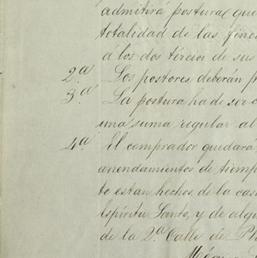 admitirá postura que
totalidad de las finc
a los dos tercios de sus
2.ª Los postores deberán p
3.ª La postura ha de ser
una suma regular al
4.ª El comprador quedará
arrendamientos de tiemp
to estan hechos de la casa
Espíritu Santo, y de algu
de la 2.ª Calle de Pl